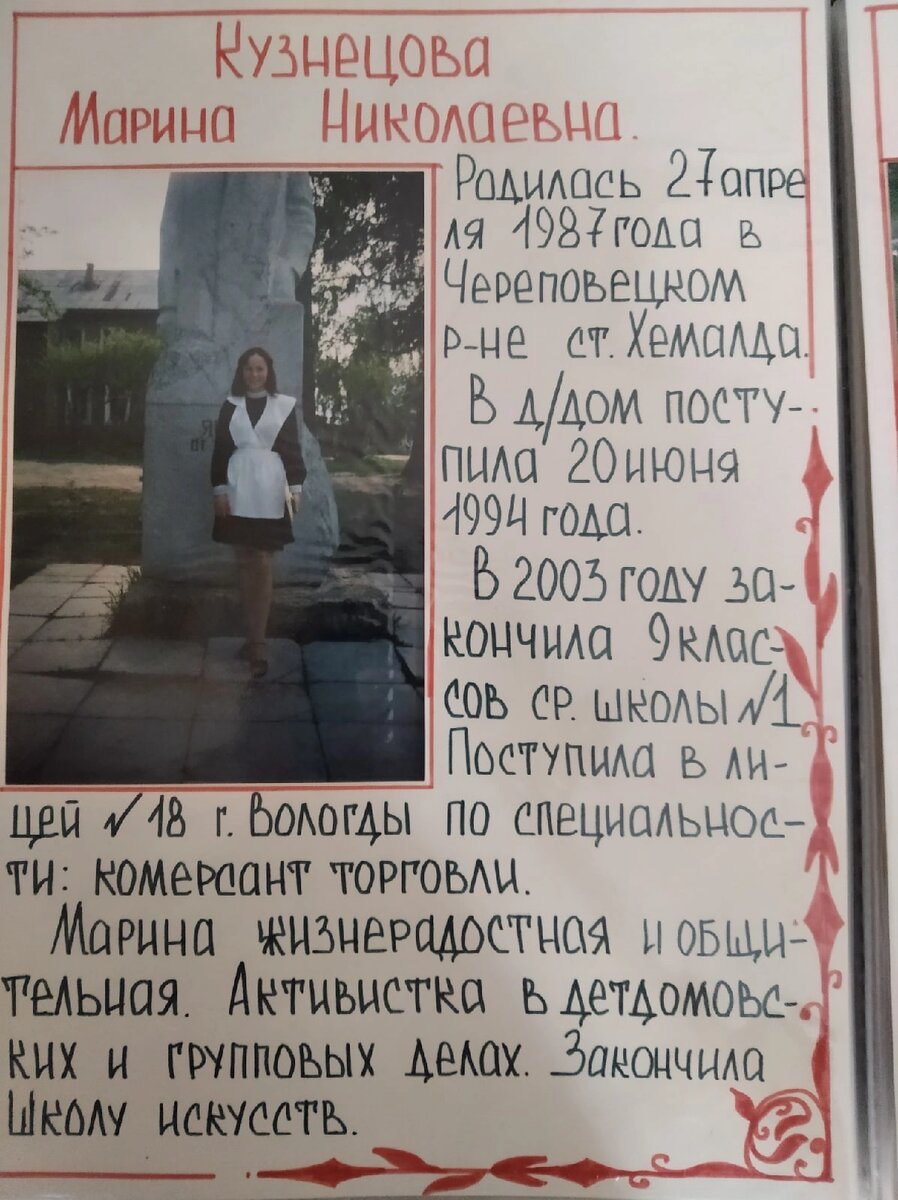 Кузнецова
Марина Николаевна.
Родилась 27 апре
ля 1987 года в
Череповецком
р-не ст. Хемалда.
В д/дом посту-
пила 20 июня
1994 года.
В 2003 году за-
кончила 9 клас-
сов ср. школы №1
Поступила в ли-
цей № 18 г. Вологды по специальнос-
ти: комерсант торговли.
Марина жизнерадостная и общи-
тельная. Активистка в детдомовс-
ких и групповых делах. Закончила
Школу искусств.